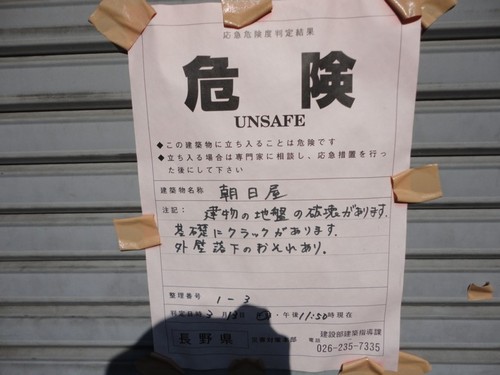 応急危険度判定結果
危険
UNSAFE
◆この建築物に立ち入ることは危険です
◆立ち入る場合は専門家に相談し、応急措置を行っ
た後にして下さい
建築物名称 朝日屋
注記: 建物の地盤の破壊があります。
基礎にクラックがあります。
外壁落下のおそれあり。
整理番号 1-3
判定日時 3月13日 午後 11:50 時現在
長野県 本部 電話 建設部建築指導課
026-235-7335